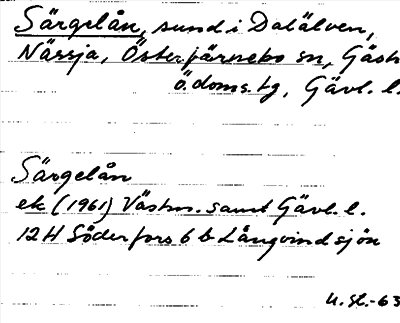 Särgelån, sund i Dalälven,
Nässja, Österfärnebo sn, Gästr
Ö.doms. tg, Gävl. l.
Särgelån
ek (1961) Västm. samt Gävl. l.
12H Söderfors 6 b Långvindsjön
U.Sl.-63